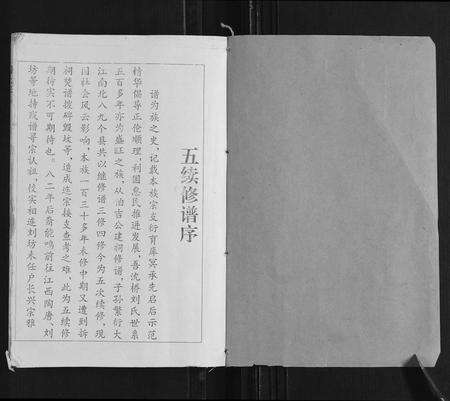 五续修谱序
谱为族之史，记载本族宗支衍育库冥承先启后示范
精华倡导正伦顺理，利国惠民推进发展，吾沈桥刘氏世系
五百多年亦为盛旺之族，从泊吉公建祠修谱，子孙繁衍大
江南北八九个县共以继修谱三修四修今为五次续修，现
因社会风云影响，本族一百三十多年未修中期又遭到拆
祠焚谱拨碑毁坟等，造成连宗接支查考之难，此为五续修
期待实不可期待也。八二年后裔能鸣前往江西陶唐、刘
坊等地持残谱寻宗认祖，佼实相连刘坊未任户长兴宗雅